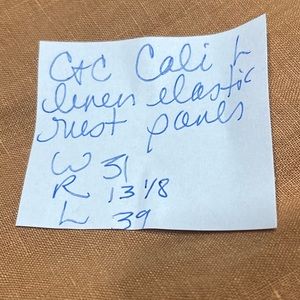 C+C Cali L
linen elastic
rust panes
W 31
R 13 1/8
L 39